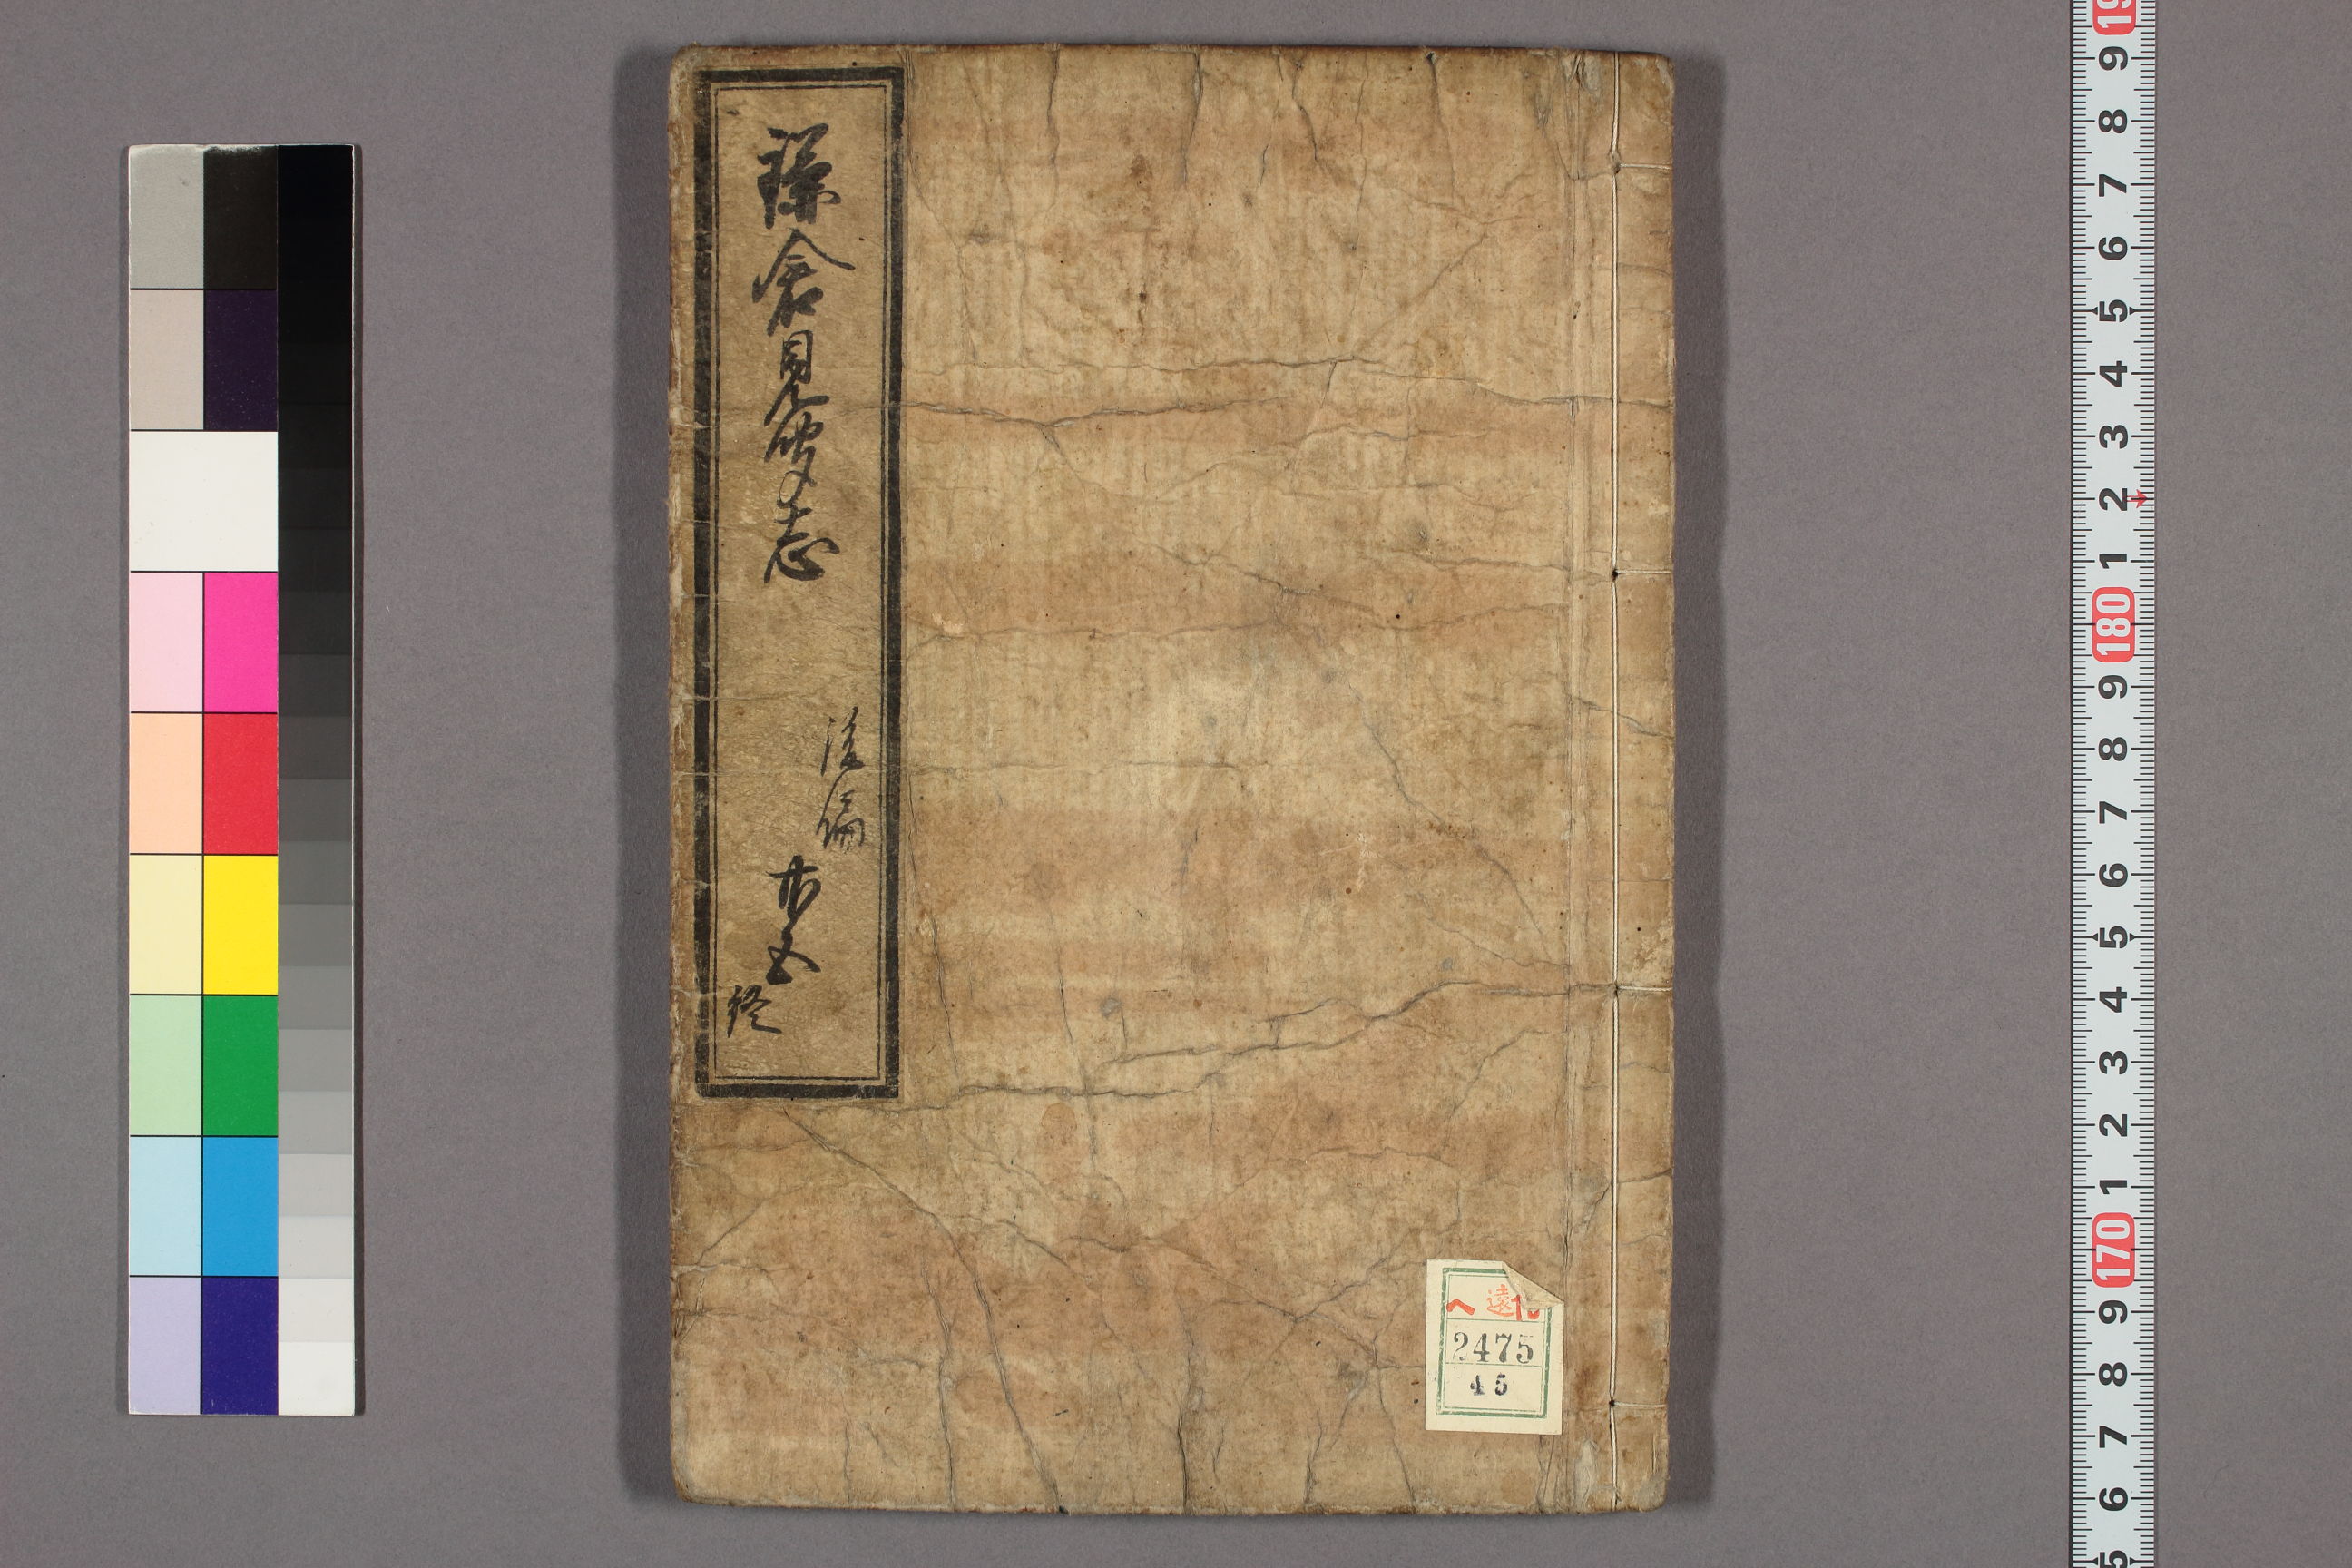 鎌倉見聞志
後編
廿五
終
ヘ 遠
2475
45
9
8
7
6
5
4
3
2
1
180
9
8
7
6
5
4
3
2
1
170
9
8
7
6
5